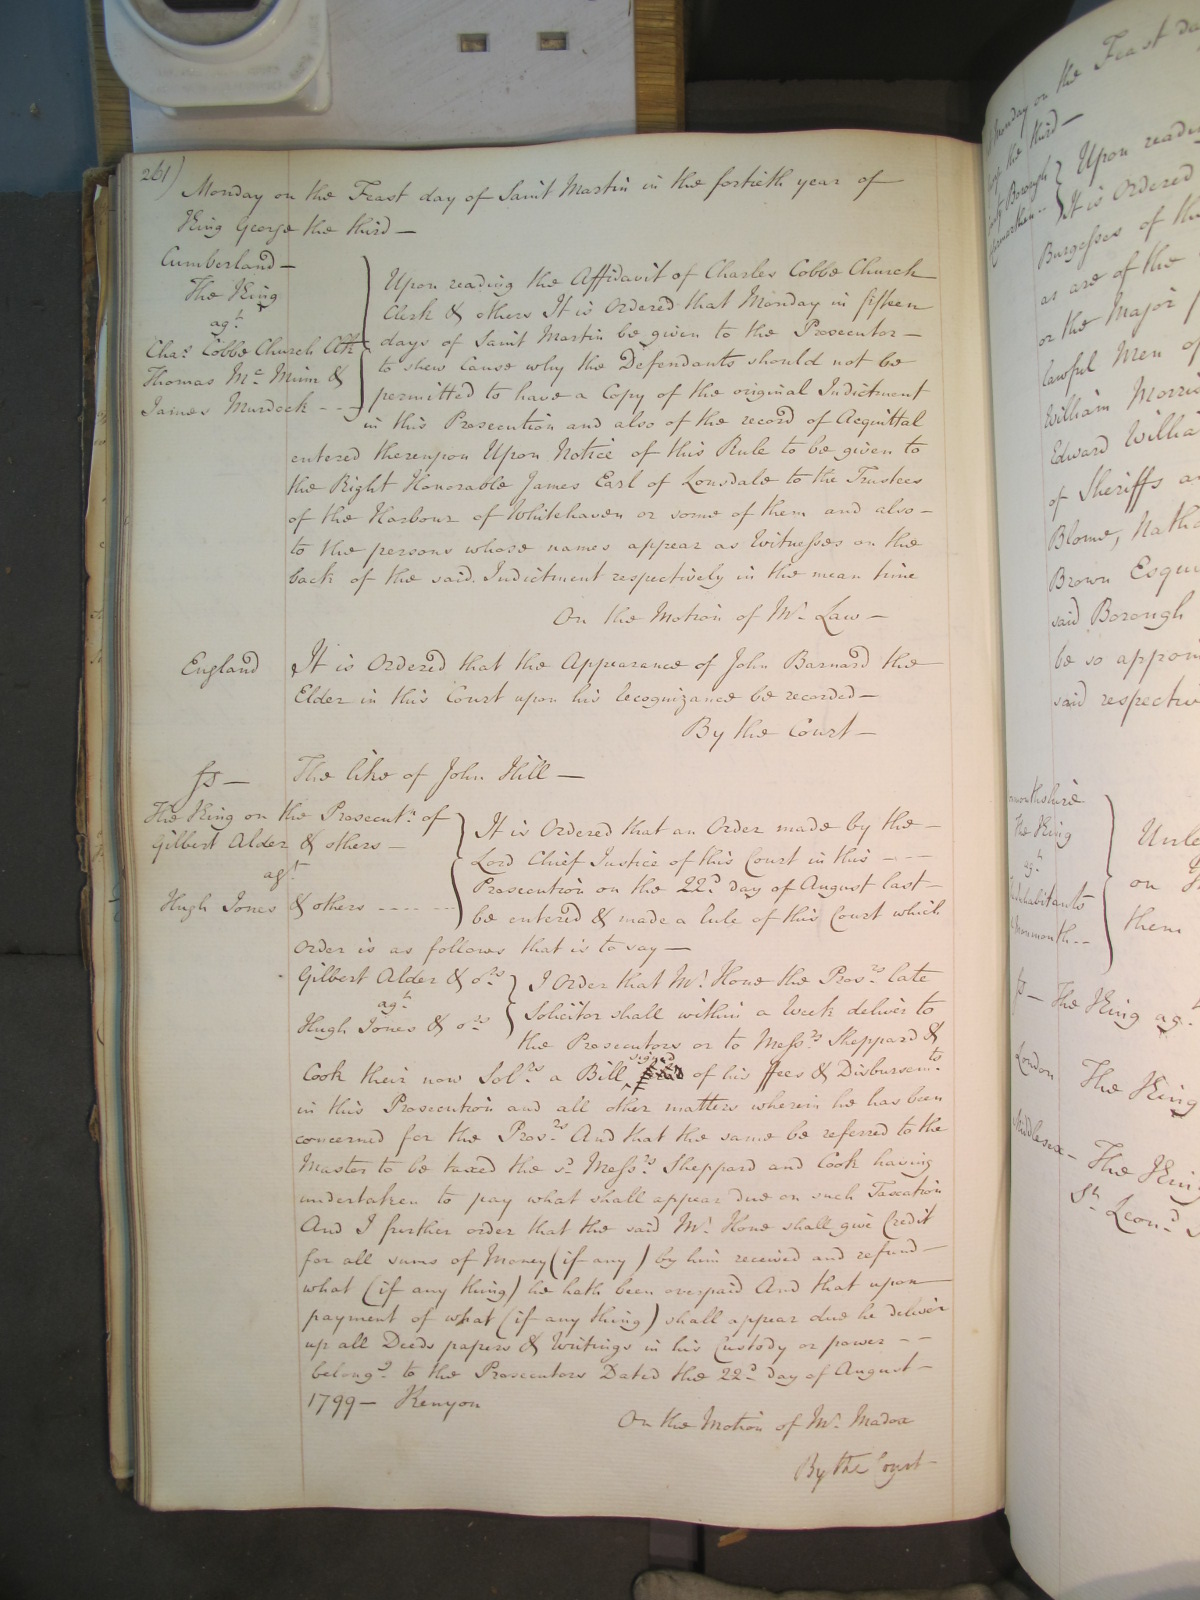 261)
Monday on the Feast day of Saint Martin in the fortieth year of
King George the third —
Cumberland —
The King
agt
Chas Cobbe Church Clk
Thomas Mc Minn &
James Murdock - - -
Upon reading the Affidavit of Charles Cobbe Church
Clerk & others It is Ordered that Monday in fifteen
days of Saint Martin be given to the Prosecutor —
to shew Cause why the Defendants should not be
permitted to have a Copy of the original Indictment
in this Prosecution and also of the record of Acquittal
entered thereupon Upon Notice of this Rule to be given to
the Right Honorable James Earl of Lonsdale to the Trustees
of the Harbour of Whitehaven or some of them and also —
to the persons whose names appear as Witnesses on the
back of the said Indictment respectively in the mean time
On the Motion of Mr. Law —
England
It is Ordered that the Appearance of John Barnard the
Elder in this Court upon his Recognizance be recorded —
By the Court —
ss —
The like of John Hill —
The King on the Prosecutn. of
Gilbert Alder & others —
agt
Hugh Jones & others - - - - - -
It is Ordered that an Order made by the —
Lord Chief Justice of this Court in this - - -
Prosecution on the 22d day of August last —
be entered & made a Rule of this Court which
Order is as follows that is to say —
Gilbert Alder & ors
agt
Hugh Jones & ors
I Order that Mr. Hone the Prosrs late
Solicitor shall within a Week deliver to
the Prosecutors or to Messrs Sheppard &
Cook their now Solrs a Bill signed of his ffees & Disbursemts
in this Prosecution and all other matters wherein he has been
concerned for the Prosrs And that the same be referred to the
Master to be taxed the sd Messrs Sheppard and Cook having
undertaken to pay what shall appear due on such Taxation
And I further order that the said Mr. Hone shall give Credit
for all sums of Money (if any) by him received and refund —
what (if any thing) he hath been overpaid And that upon
payment of what (if any thing) shall appear due he deliver
up all Deeds papers & Writings in his Custody or power - -
belongg to the Prosecutors Dated the 22d day of August —
1799 — Kenyon
On the Motion of Mr. Madox
By the Court —
Monday on the Feast da
the third —
Borough
Upon readi
It is Ordered
Burgesses of th
as are of the
or the Major
lawful Men of
William Morri
Edward Willia
of Sheriffs a
Blome, Natha
Brown Esqui
said Borough
be so appoin
said respectiv
The King
agt
Inhabitants
Monmouth - -
Unle
on
them
ss — The King ag
London
The King
Middlesex —
The King
St. Leond